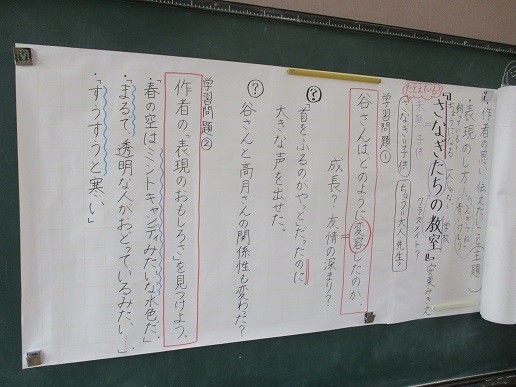 ・作者の思い・伝えたいこと(主題)
・表現のし方
『さなぎたちの教室』安東みきえ
学校
クラスメイト?
さなぎ=子供
ちょう=大人 先生?
学習問題①
谷さんはどのように変容したのか。
成長? 友情の深まり?
?「首をふるのがやっとだったのに
大きな声を出せた。
? 谷さんと高月さんの関係性も変わった?
学習問題②
作者の「表現のおもしろさ」を見つけよう。
・「春の空はミントキャンディみたいな水色だ」
・「まるで、透明な人がおとっているみたい……」
・「すうすうと寒い」